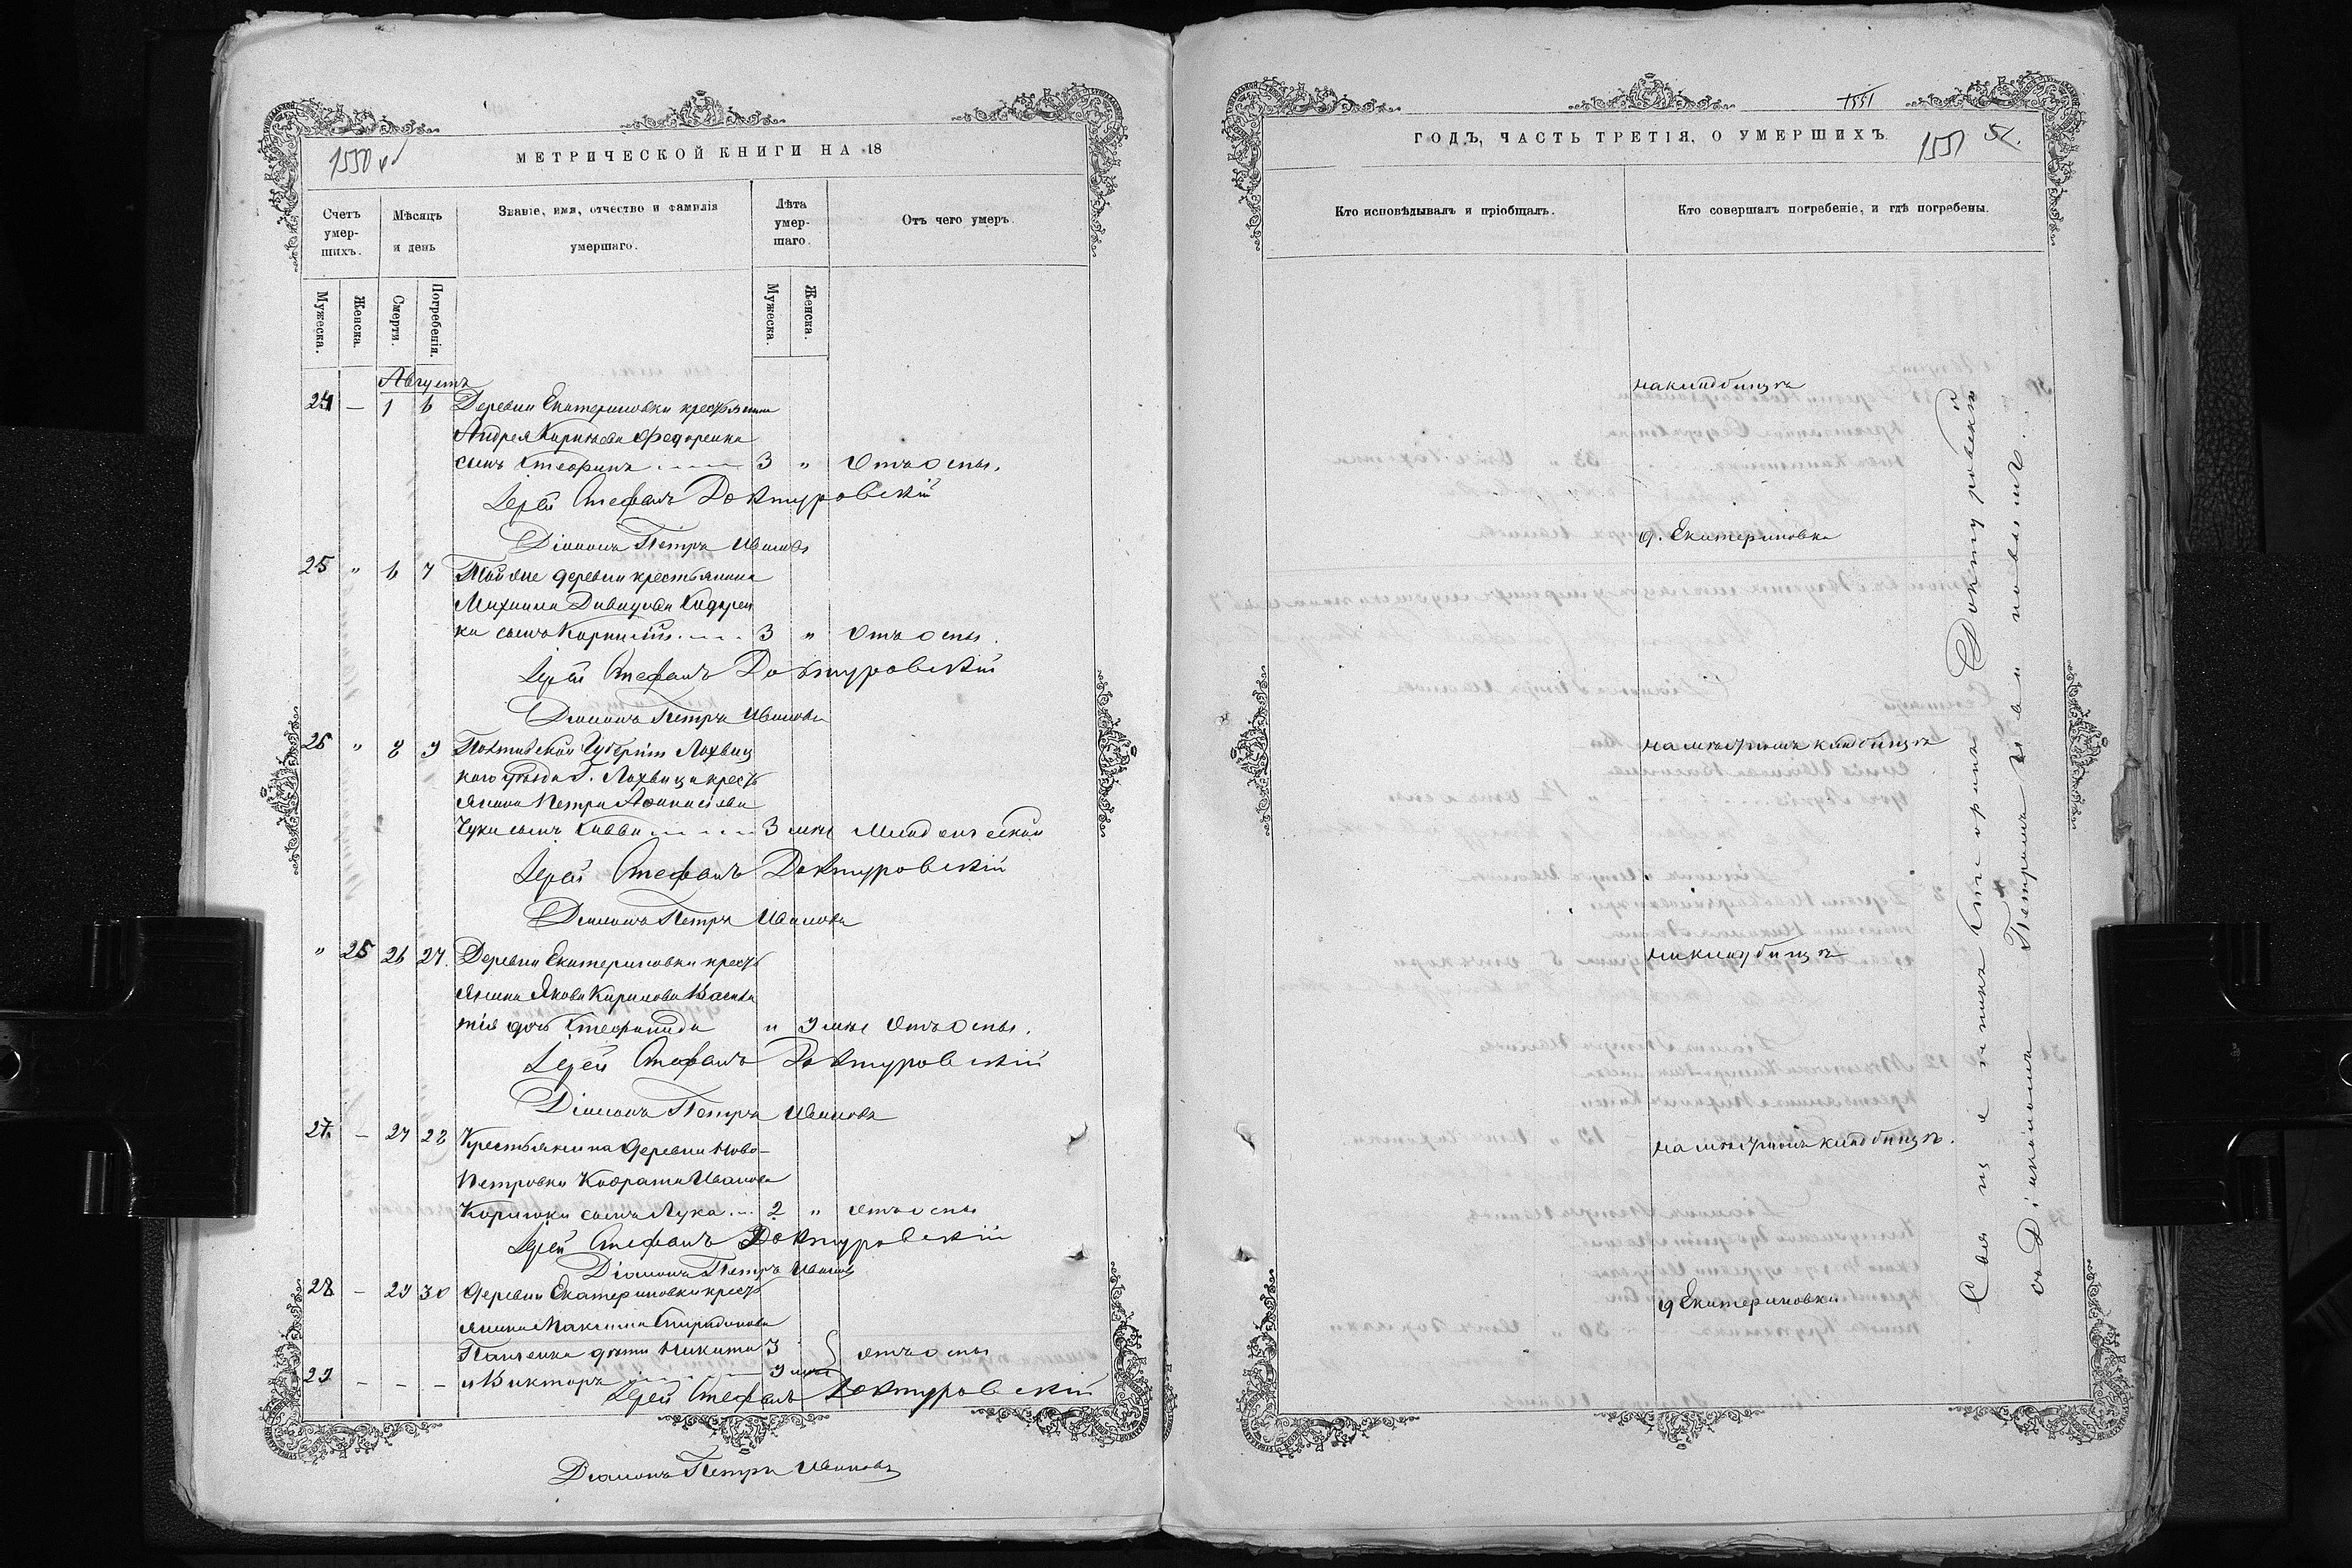 1550 об
МЕТРИЧЕСКОЙ КНИГИ НА 18
Счетъ умер-шихъ.
Мѣсяцъ и день
Званіе, имя, отчество и фамилія умершаго.
Лѣта умер-шаго.
Отъ чего умеръ.
Мужеска.
Женска.
Смерти.
Погребенія.
Мужеска.
Женска.
Августъ
24 – 1 6 Деревни Екатериновки крестьянина
Андрея Федоренка
сынъ Стефанъ 3 " Отъ оспы.
Іерей Стефанъ Доктуровскій
Діаконъ Петръ Ивановъ
25 " 6 7 Той же деревни крестьянина
Михаила Давидова
ка сынъ Корнилій 3 " Отъ оспы.
Іерей Стефанъ Доктуровскій
Діаконъ Петръ Ивановъ
26 " 8 9 Полтавской Губерніи Лохвиц
кого уѣзда Г. Лохвица кресть
янина Петра Аѳанасіева
сынъ Савва 3 мѣс Младенческой
Іерей Стефанъ Доктуровскій
Діаконъ Петръ Ивановъ
" 25 26 27. Деревни Екатериновки кресть
янина Якова Кирилова
дочь Стефанида " 9 мѣс Отъ Оспы.
Іерей Стефанъ Доктуровскій
Діаконъ Петръ Ивановъ
27. – 27 28 Крестьянина деревни Ново-
Петровки Кодрата Иванова
сынъ Лука 2 " отъ оспы
Іерей Стефанъ Доктуровскій
Діаконъ Петръ Ивановъ
28 – 29 30 деревни Екатериновки кресть
янина Максима Спиридонова
Панченка дѣти Никита 3 отъ оспы
29 – – – и Викторъ 9 мѣс
Іерей Стефанъ Доктуровскій
Діаконъ Петръ Ивановъ
1551
ГОДЪ, ЧАСТЬ ТРЕТІЯ, О УМЕРШИХЪ.
1551
Кто исповѣдывалъ и пріобщалъ.
Кто совершалъ погребеніе, и гдѣ погребены.
на кладбищѣ
д. Екатериновка
на мѣстномъ кладбищѣ
на кладбищѣ
на мѣстномъ кладбищѣ.
д Екатериновки
Священникъ Стефанъ Доктуровскій
съ Діакономъ Петромъ Ивановымъ.